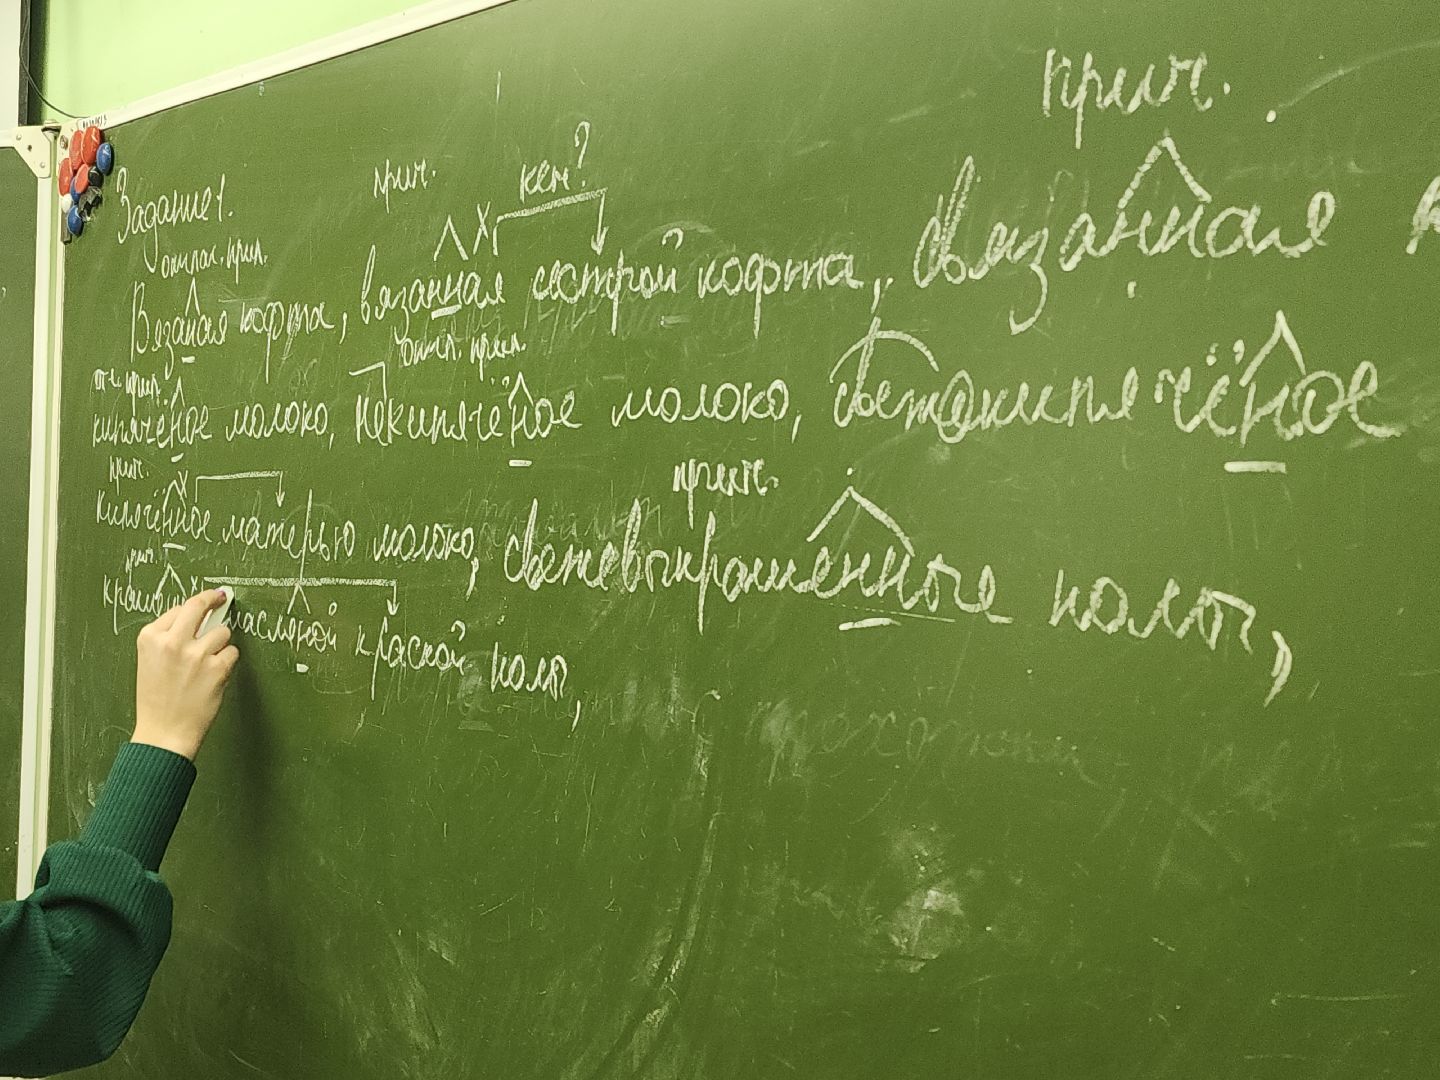 Задание 1.
прич. кем? прич.
отглаг. прил.
Вязаная кофта, вязанная сестрой кофта, связанная к
отгл. прил.
отгл. прил.
кипячёное молоко, некипячёное молоко, свежекипячёное
прич. прич.
кипячённое матерью молоко, свежевыкрашенные полы,
прич.
крашен масляной краской полы,